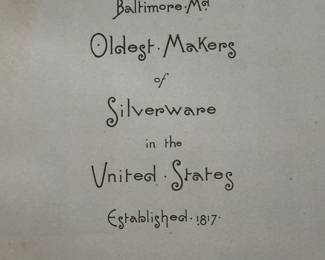 Baltimore · Md
Oldest · Makers
of
Silverware
in the
United · States
Established · 1817 ·